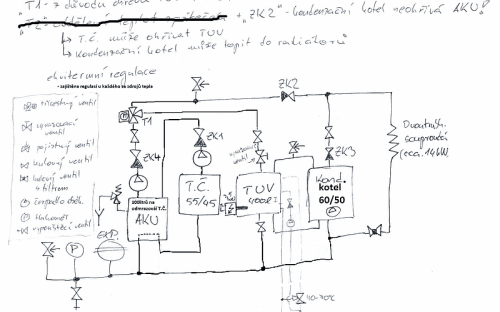 T1 - z důvodu
"ZK2" - kondenzační kotel neohřívá AKU!
↳ T.Č. může ohřívat TUV
↳ kondenzační kotel může topit do radiátorů
ekvitermní regulace
- zajištěna regulací u každého ze zdrojů tepla
třícestný ventil
uzavírací ventil
pojistný ventil
kulový ventil
kulový ventil s filtrem
Čerpadlo oběh.
tlakoměr
vypouštěcí ventil
T1
ZK4
ZK1
ZK2
ZK3
100litrů na odmrazování T.Č.
AKU
T.Č.
55/45
TUV
400L
Kond.
kotel
60/50
(cca. 14kW)
P
EXP.